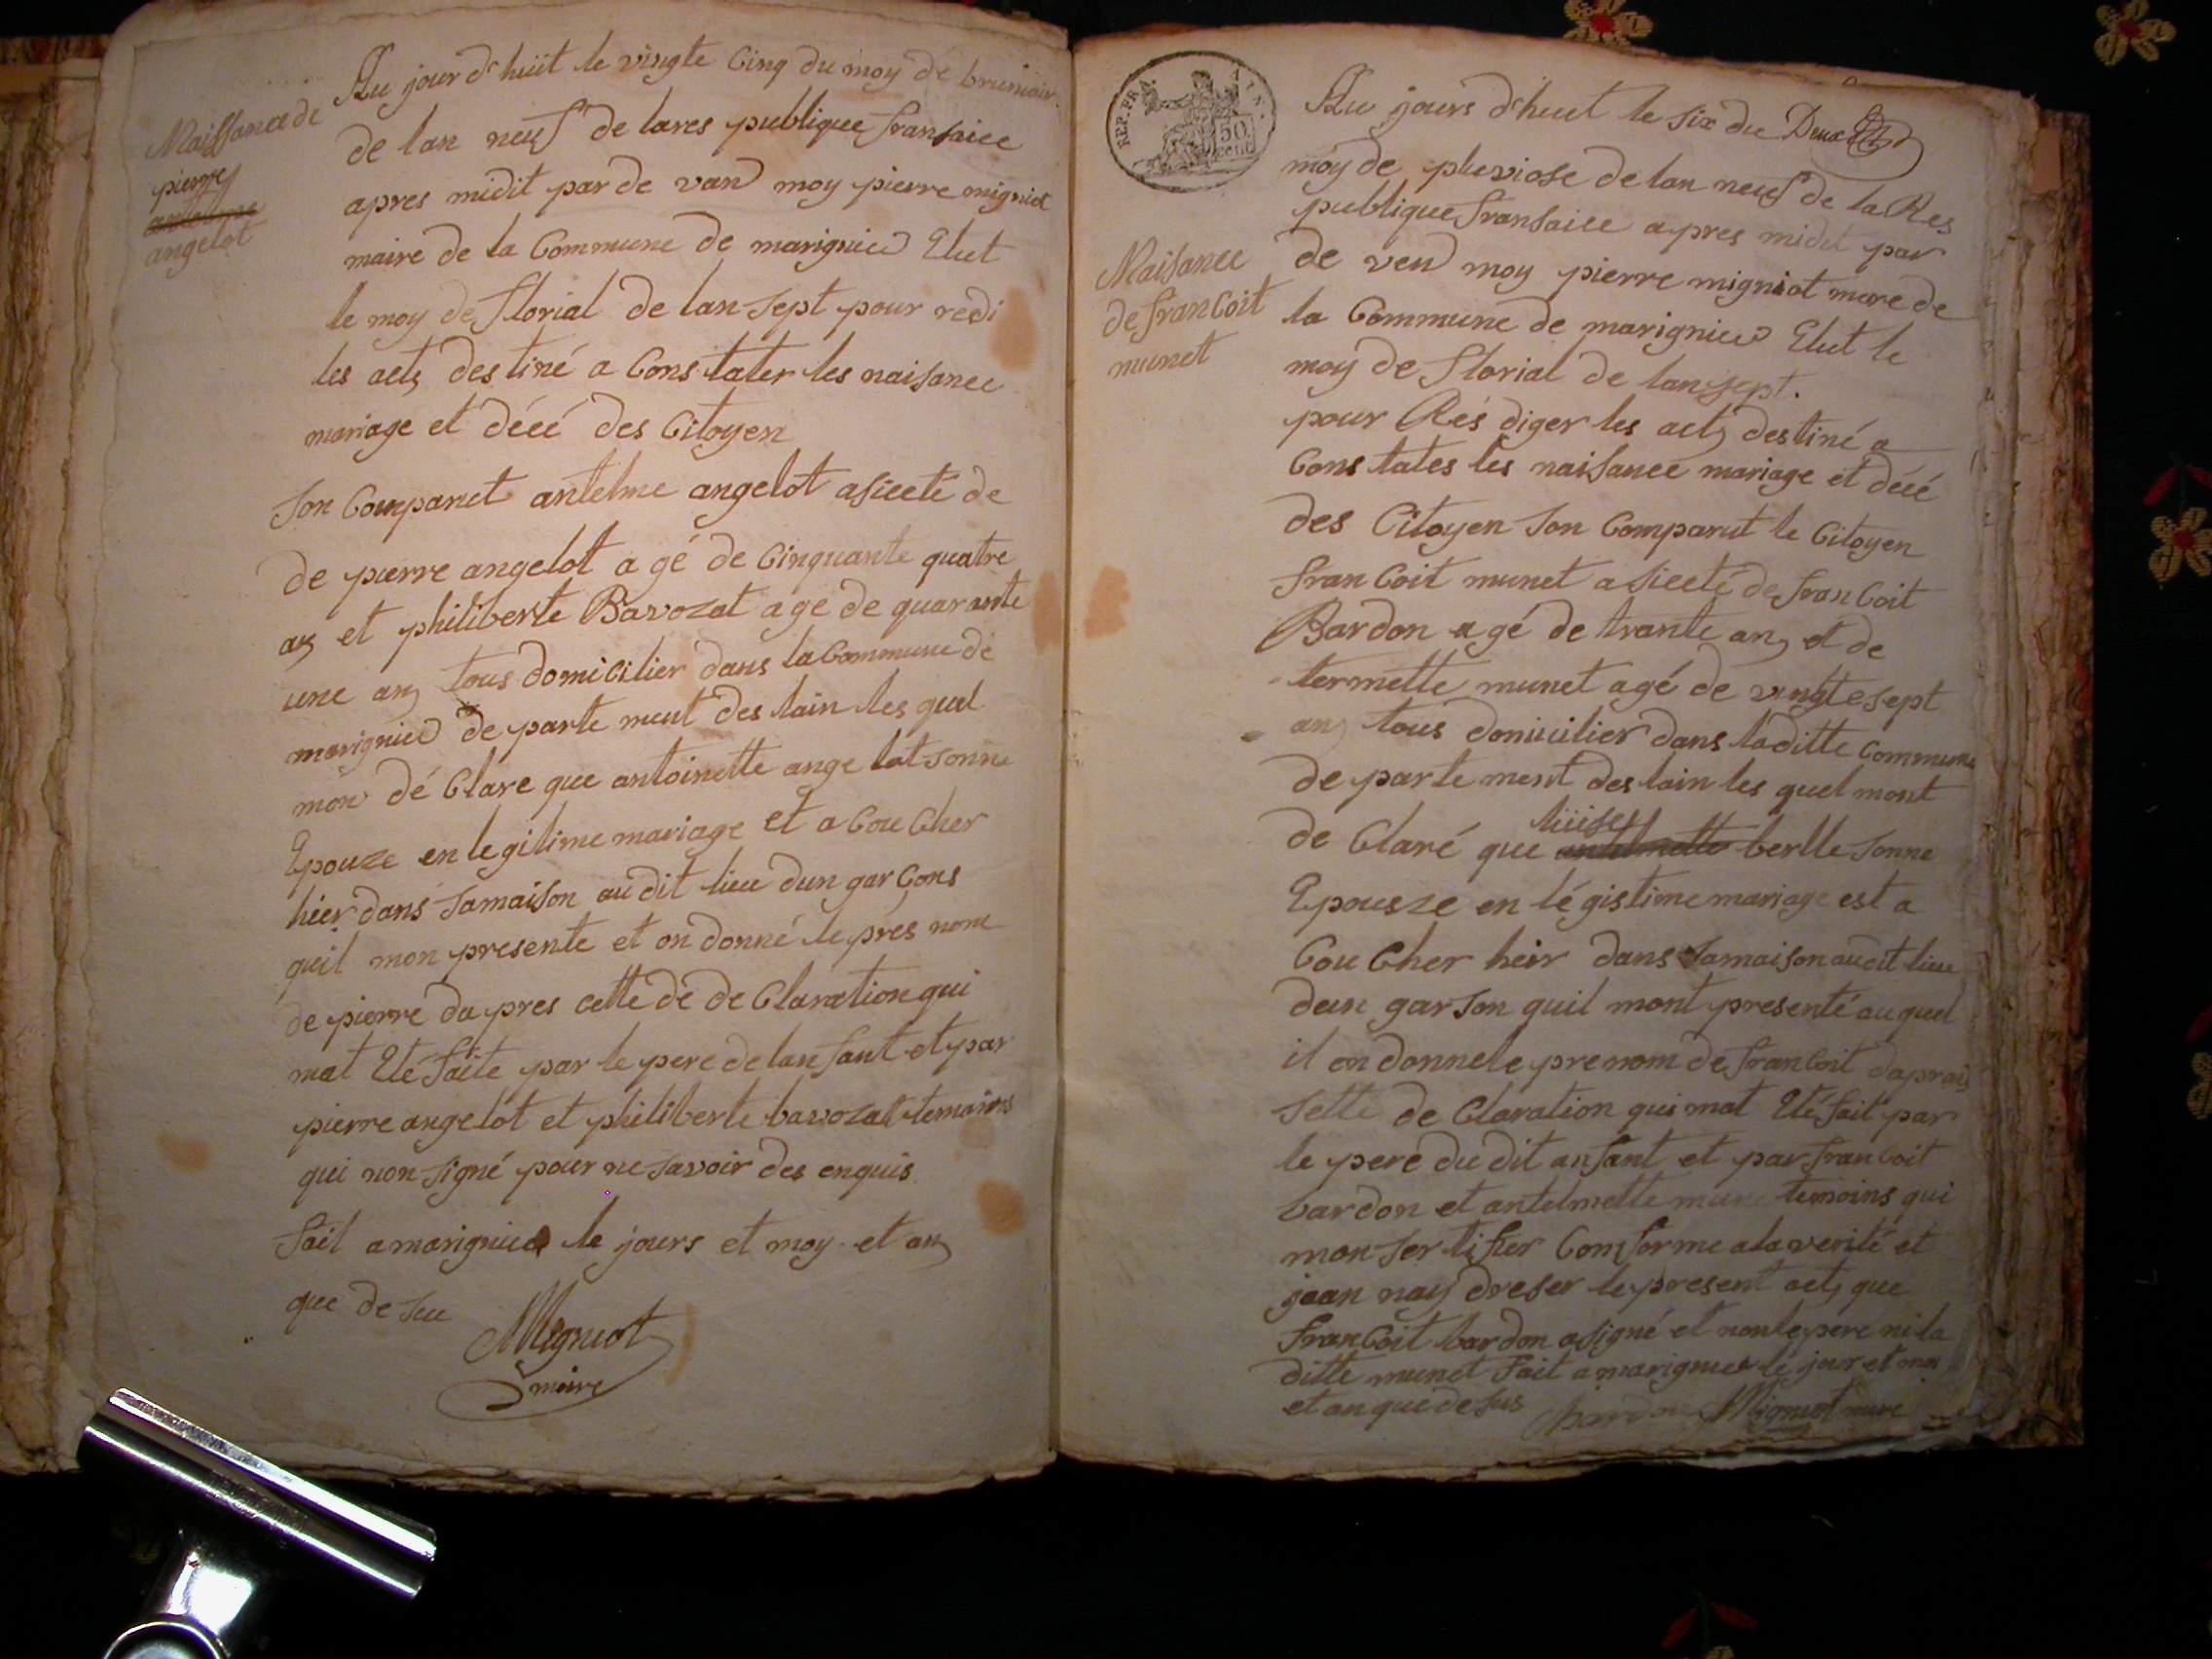 Naissance de
pierre
antelme
angelot
Au jour d'huit le vingte Cinq du moy de brumair
de lan neuf de lares publique fransaice
apres midit par de van moy pierre migniot
maire de la Commune de marignieu Elut
le moy de florial de lan sept pour redi
les acts destiné a Constater les naisance
mariage et décé des Citoyen
Son Comparut antelme angelot asiceté de
de pierre angelot a gé de Cinquante quatre
as et philiberte Bavozat age de quarante
une an tous domicilier dans la Commune de
marignieu de parte ment des lain les quel
mon dé Clare que antoinette ange lot sonne
Epouze en legitime mariage et a Cou Cher
hier dans samaison au dit lieu dun garçons
quil mon presente et on donné le pres nom
de pierre da pres cette dé de Claration qui
mat Eté faite par le pere de lan fant et par
pierre angelot et philiberte bavozat temoins
qui non signé pour ne savoir des enquis
fait a marignieu le jours et moy et an
que de su
Migniot
maire
REP. FRA. AIN.
50
cent
Au jours d'huit le six du Deux
moy de pluviose de lan neuf de la Res
publique fransaice apres midit par
de ven moy pierre migniot mare de
la Commune de marignieu Elut le
moy de florial de lan sept.
Naisance
de franCoit
munet
pour Rés diger les acts destiné a
Cons tates les naisance mariage et décé
des Citoyen son Comparut le Citoyen
franCoit munet a siceté de franCoit
Bardon a gé de trante an et de
termette munet agé de vingte sept
an tous domicilier dans laditte Commune
de parte ment des lain les quel mont
luise
de Claré que antelmette berlle sonne
Epousze en légistime mariage est a
Cou Cher heir dans samaison audit lieu
dun garson quil mont presenté au quel
il on donne le prenom de franCoit daprais
sette de Claration qui mat Eté fait par
le pere du dit anfant et par franCoit
bardon et antelmette temoins qui
mon ser tifier Comforme ala verité et
jean nay dreser le present act que
franCoit bardon a signé et non le pere ni la
ditte munet fait a marignieu le jour et moi
et an que de sus
bardon Migniot mare